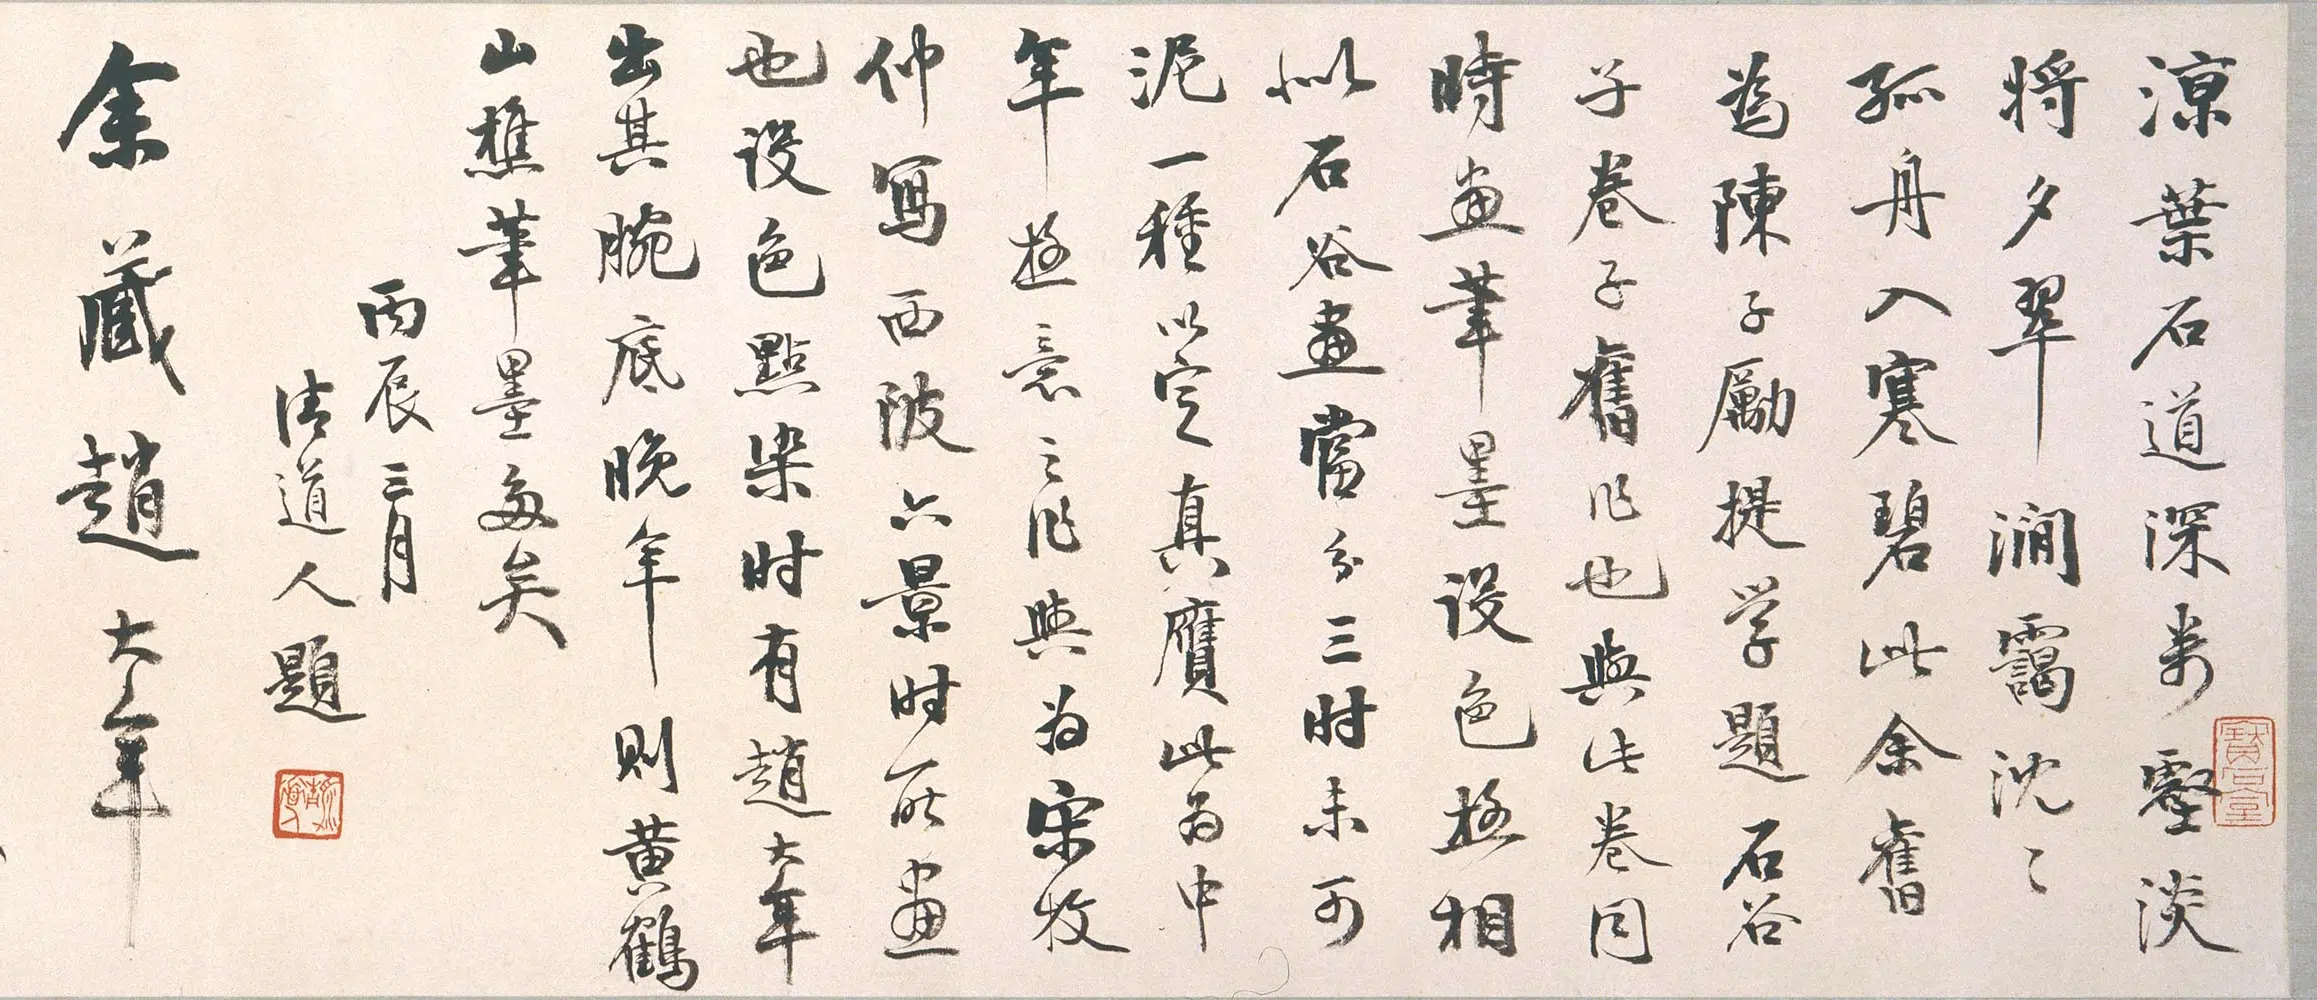 涼葉石道深炎壑淡
将夕翠澗靄沈〻
孤舟入寒碧此余舊
為陳子勵提学題石谷
子卷子舊作也與此卷同
時畫筆墨設色極相
似石谷畫當分三时未可
泥一種以定真贋此為中
年極意之作與為宋牧
仲寫西陂六景时所畫
也設色點染时有趙大年
出其腕底晚年则黄鶴
山樵筆墨多矣
丙辰三月
清道人題
余藏趙大年